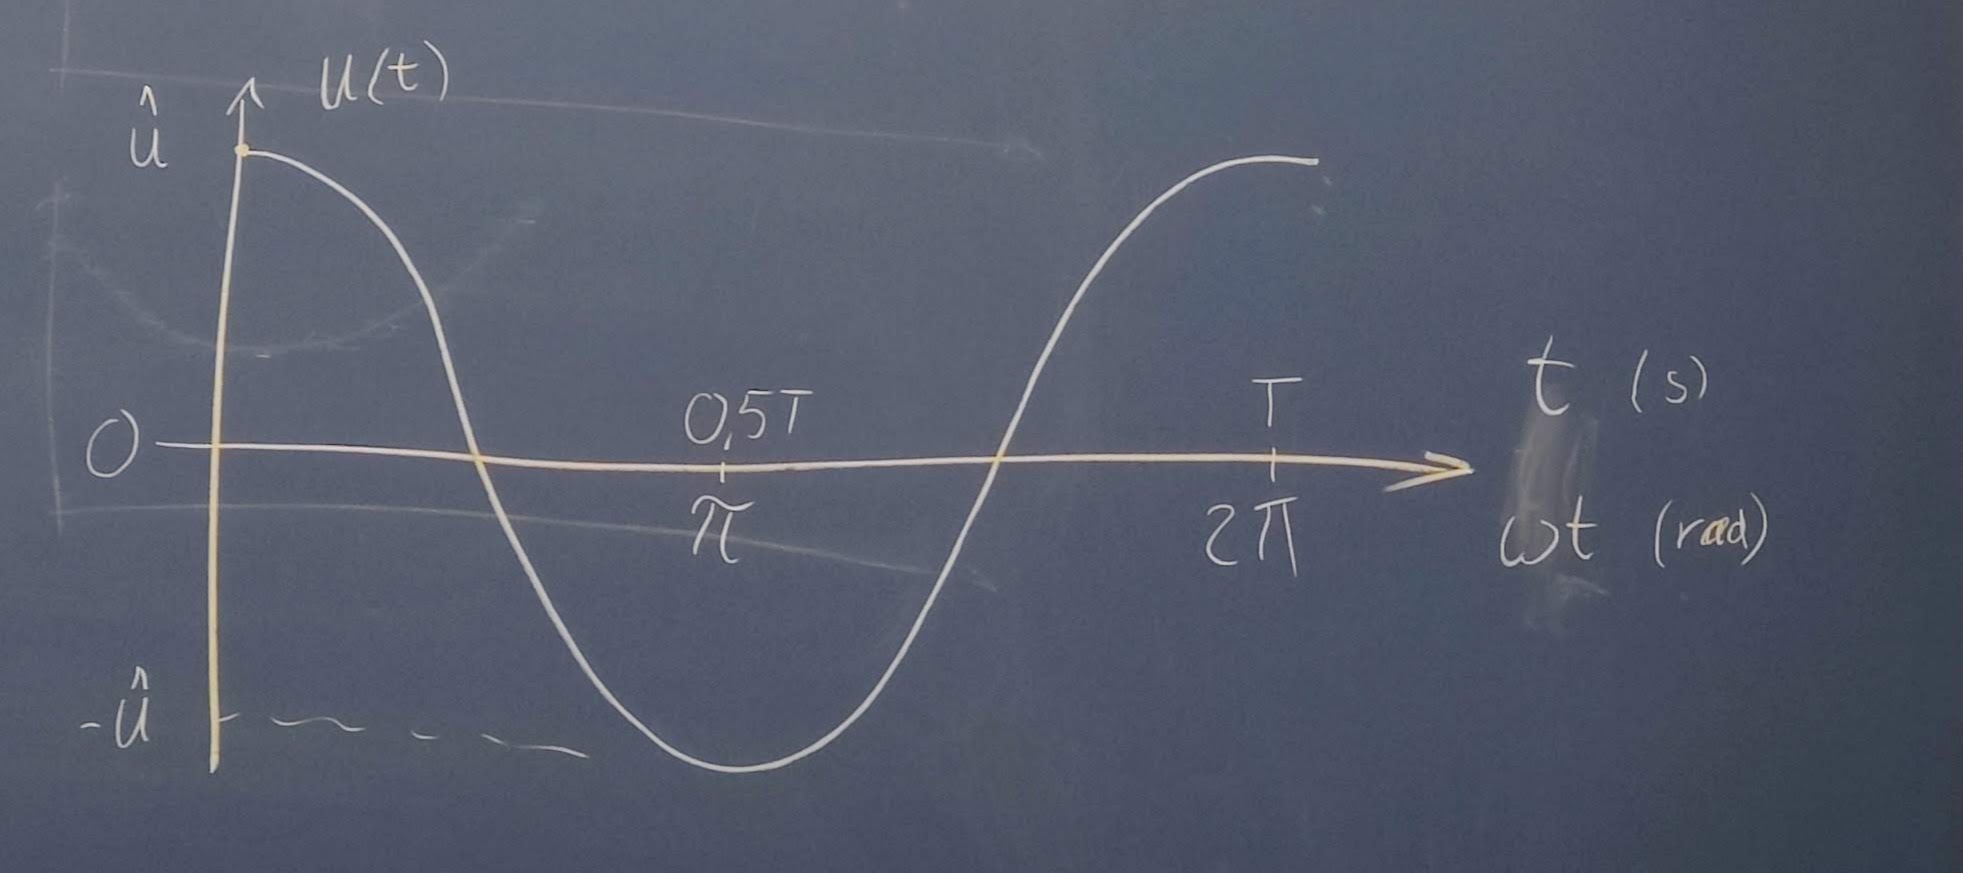 û
u(t)
0
0,5T
T
t (s)
π
2π
ωt (rad)
-û